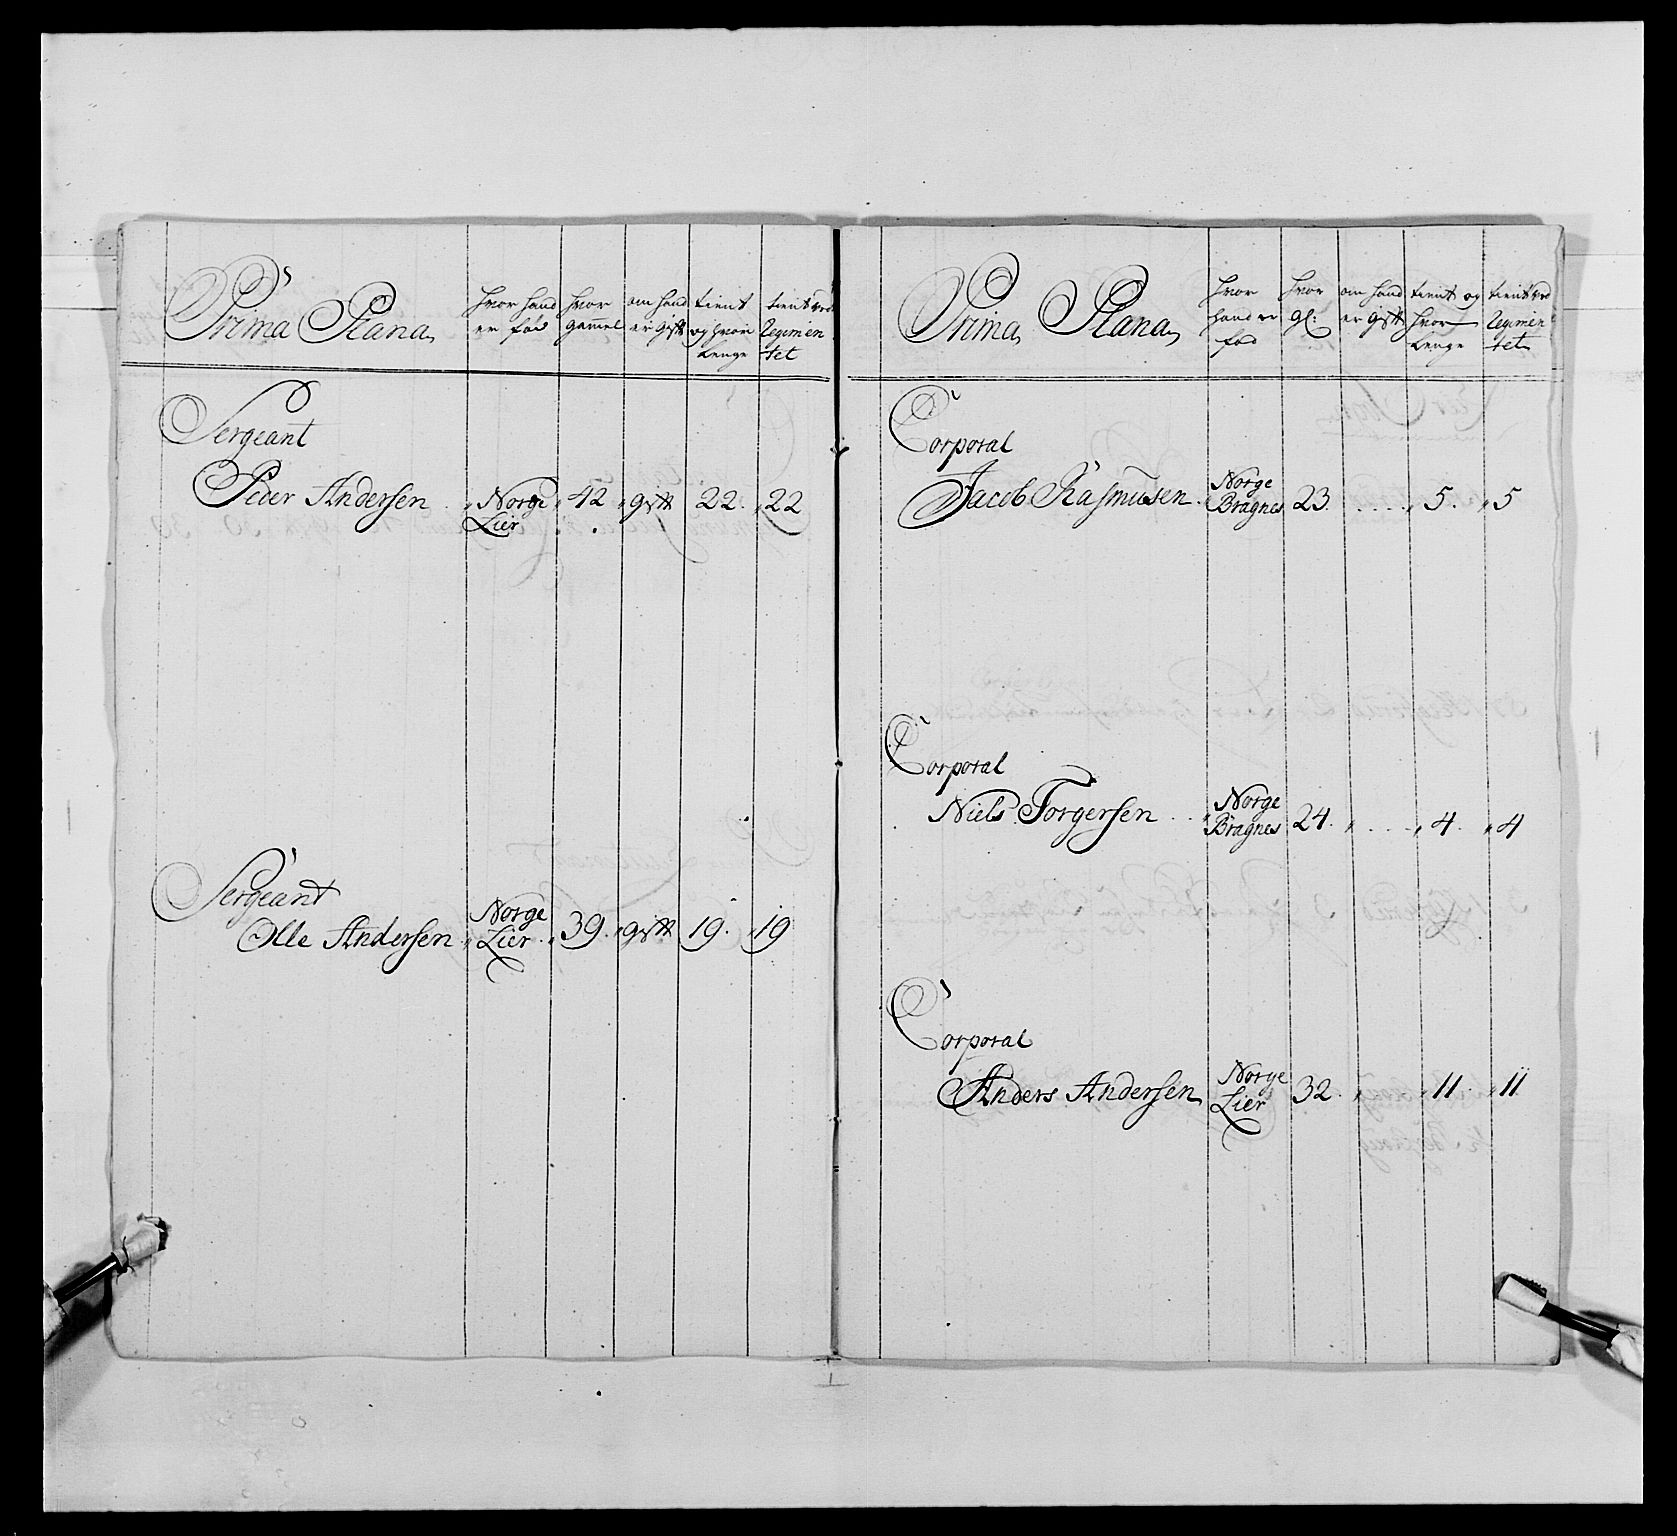 Prima Plana
hvor hand er fød
hvor gammel
om hand er gift
tient og hvor Lenge
tient ved Regimentet
Sergeant
Peder Andersen Norge Lier 42 gift 22 22
Sergeant
Olle Andersen Norge Lier 39 gift 19 19
Prima Plana
hvor hand er fød
hvor gl:
om hand er gift
tient og hvor Lenge
tient ved Regimentet
Corporal
Jacob Rasmusen Norge Bragnes 23 5 5
Corporal
Niels Torgersen Norge Bragnes 24 4 4
Corporal
Anders Andersen Norge Lier 32 11 11